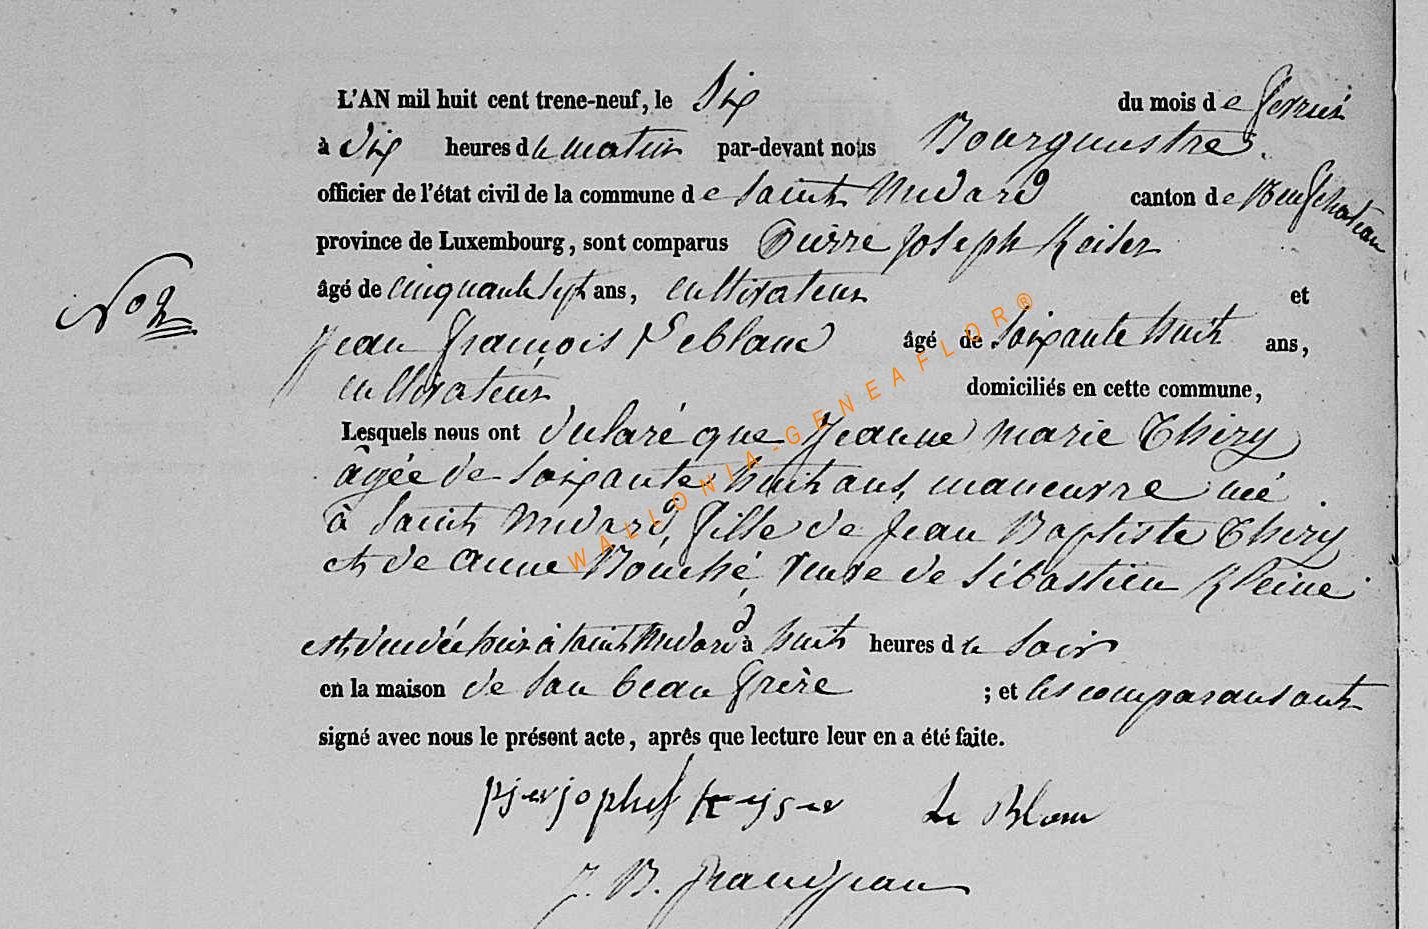 L'AN mil huit cent trene-neuf, le Six du mois de fevrier
à Dix heures du matin par-devant nous Bourguestre
officier de l'état civil de la commune de Saint Medard canton de Neufchateau
province de Luxembourg, sont comparus Pierre Joseph Keiser
No 2
âgé de cinquante sept ans, cultivateur et
Jean François Leblanc âgé de soixante huit ans,
cultivateur domiciliés en cette commune,
Lesquels nous ont declaré que Jeanne marie Thiry
âgée de soixante huit ans, maneuvre née
à Saint Medard, fille de Jean Baptiste Thiry
et de anne Bouché, veuve de Sébastien Kleine
est décédée hier à Saint Medard à huit heures du soir
en la maison de son beau frère ; et les comparans ont
signé avec nous le présent acte, après que lecture leur en a été faite.
Le Blanc
J. B. Grandjean
WALLONIA-GENEAFLOR®